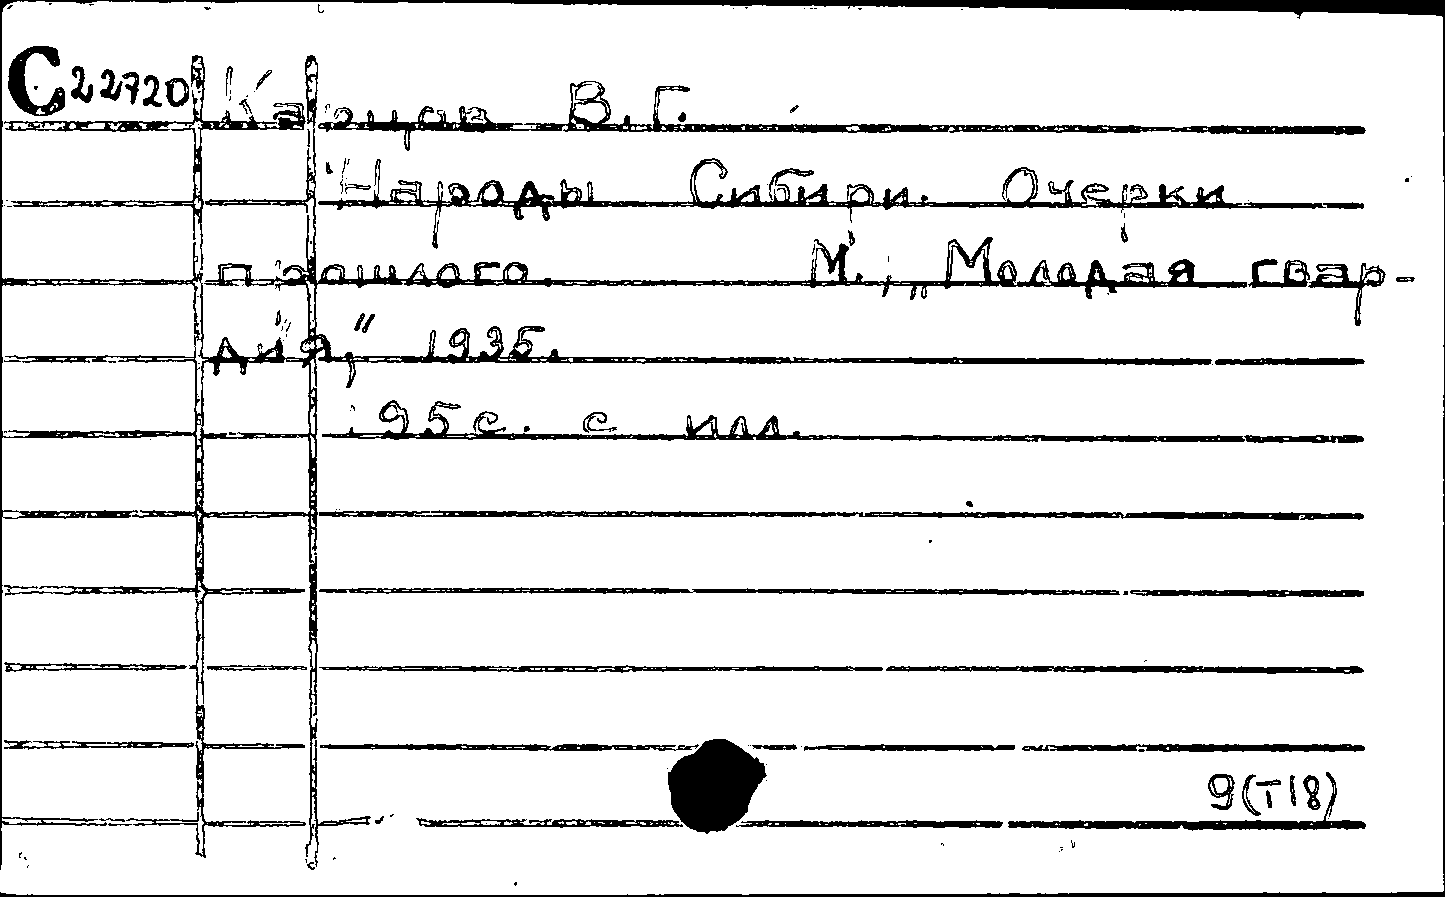 С22720 Карцов В.Г.
Народы Сибири. Очерки
прошлого. М., „Молодая гвар-
дия," 1935.
95 с. с илл.
9(Т18)